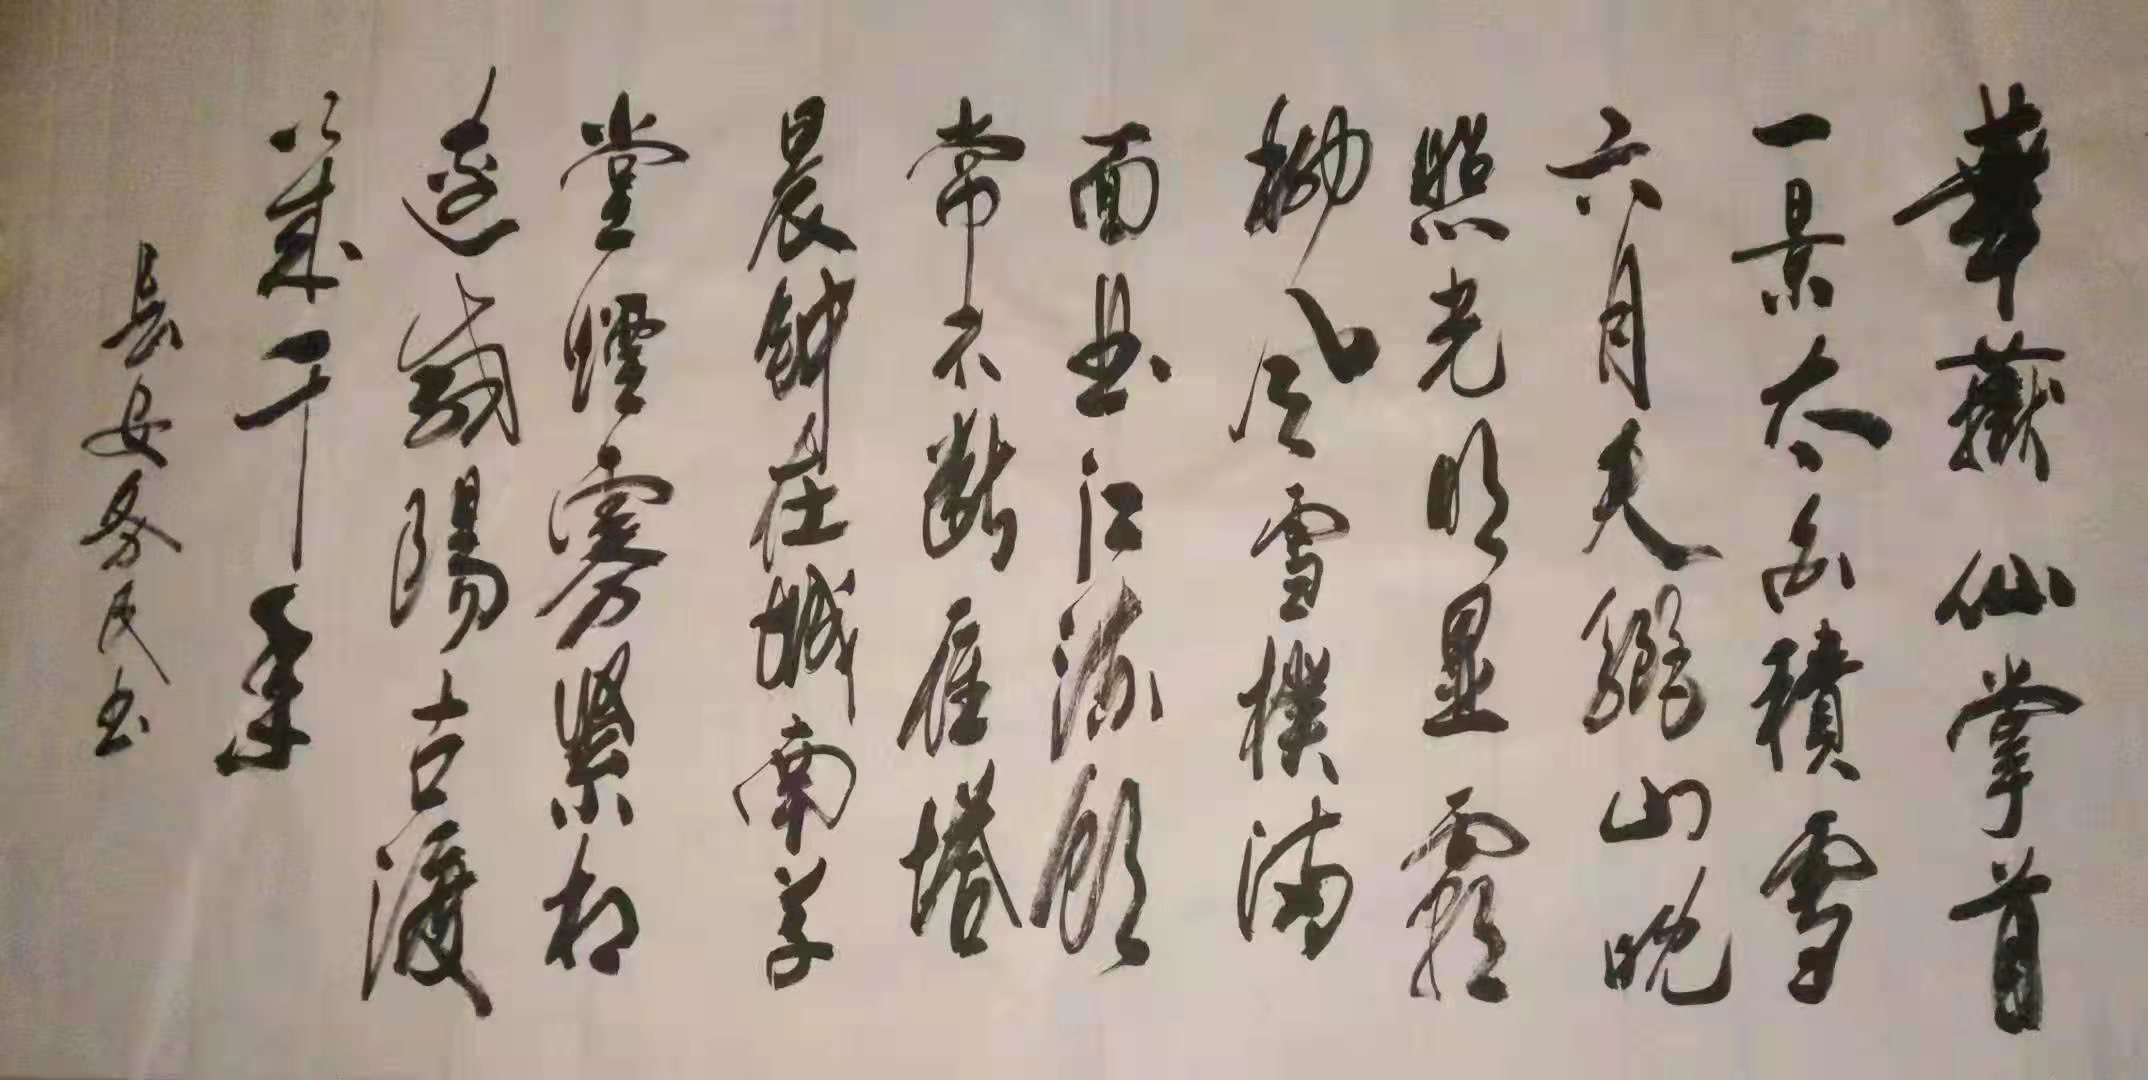 華嶽仙掌首
一景太白積雪
六月天驪山晚
照光明显霸
柳风雪撲满
面曲江流飲
常不断雁塔
晨鈡在城南草
堂煙霧緊相
連咸陽古渡
幾千年
長安务民书